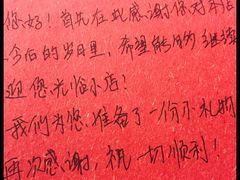 您好！首先在此感谢您对本店
今后的岁月里，希望能够继续
迎您光临小店！
我们为您准备了一份小礼物
再次感谢，祝一切顺利！